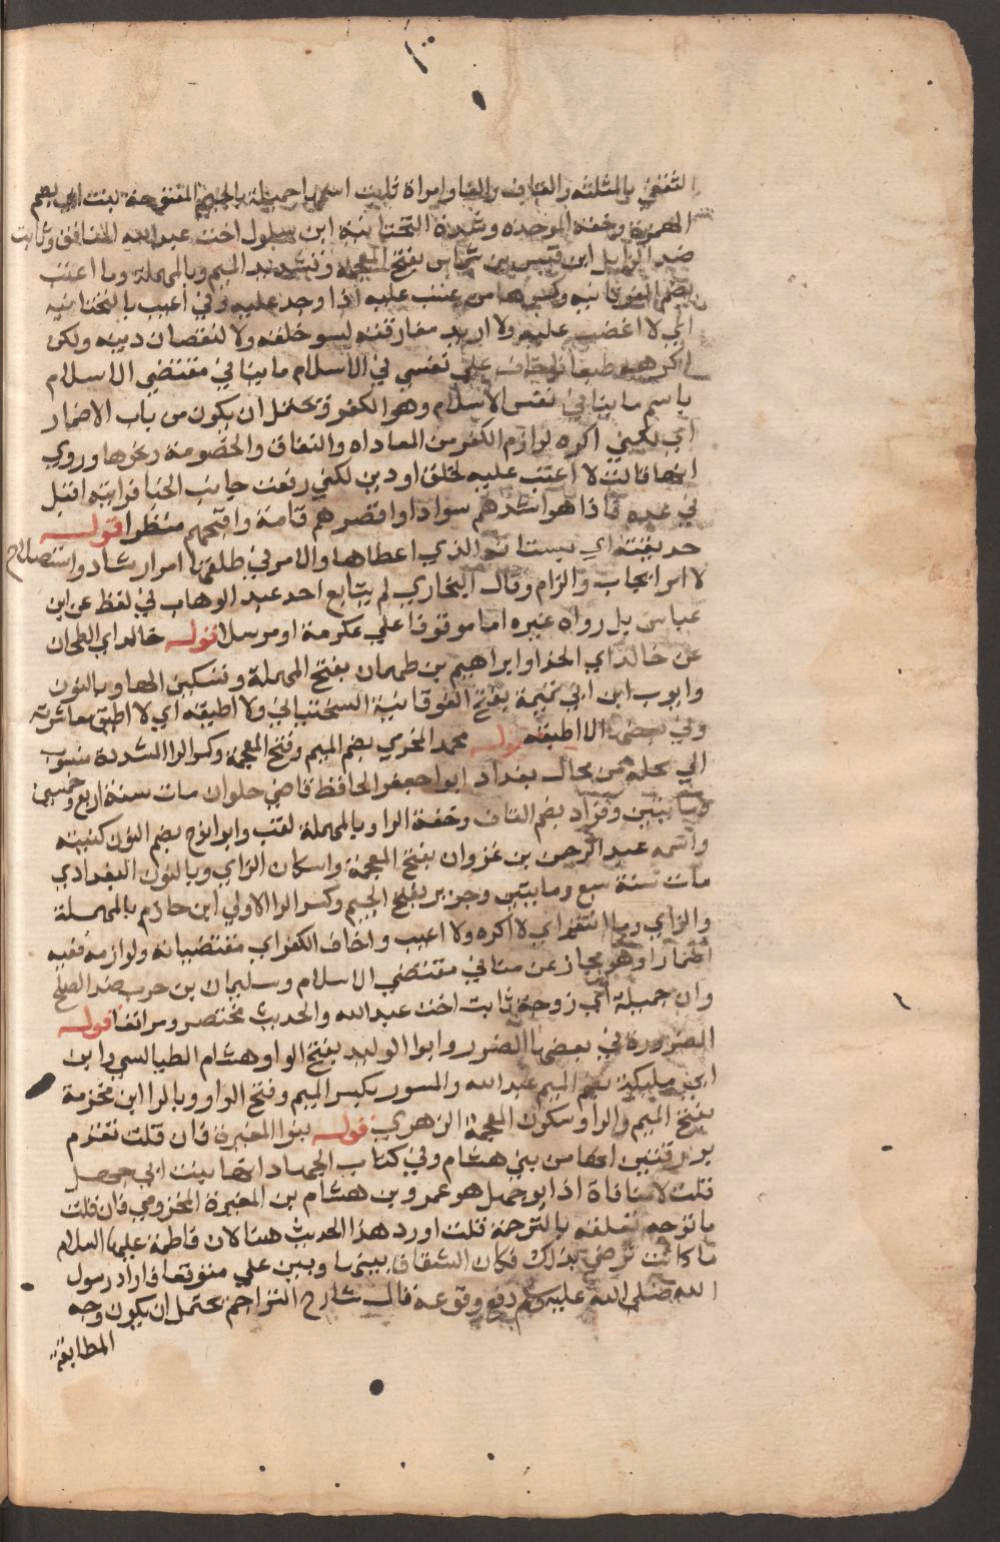 الثقفي بالمثلثة والقاف والفا وامراة ثابت اسمها جميلة بالجيم المفتوحة بنت ابي بضم
الهمزة وخفة الموحدة وشدة التحتانية ابن سلول اخت عبدالله المنافق وثابت
ضد الزايل ابن قيس بن شماس بفتح المعجمة وتشديد الميم وبالمهملة وما اعتب
بضم الفوقانية وكسرها من عتب عليه اذا وجد عليه وفي اعيب بالتحتانية
اي لا اغضب عليه ولا اريد مفارقته لسو خلقه ولا لنقصان دينه ولكن
اكرهه طبعا فاخاف على نفسي في الاسلام ما ينافي مقتضي الاسلام
باسم ما ينافي نفس الاسلام وهو الكفر ويحتمل ان يكون من باب الاضمار
اي لكني اكره لوازم الكفر من المعاداه والنفاق والخصومة ونحوها وروي
انها قالت لا اعتب عليه لخلق او دين لكني رفعت جانب الخبا فرايته اقبل
في عدة فاذا هو اشدهم سوادا واقصرهم قامة واقبحهم منظرا قوله
حديقته اي بستانه الذي اعطاها والامر في طلقها امر ارشاد واستصلاح
لا امر ايجاب والزام وقال البخاري لم يتابع احد عبد الوهاب في لفظ عن ابن
عباس بل رواه غيره اما موقوفا علي عكرمة او مرسلا قوله خالد اي الطحان
عن خالد اي الحذا وابراهيم بن طهمان بفتح المهملة وتسكين الها وبالنون
وايوب ابن ابي تميمة بفتح الفوقانية السختياني ولا اطيقه اي لا اطيق معاشرته
وفي بعضها الا اطيقه قوله محمد المخرمي بضم الميم وفتح المعجمة وكسر الرا المشددة منسوب
الي محلة من محال بغداد ابو جعفر الحافظ قاضي حلوان مات سنة اربع وخمسين
ومايتين وقراد بضم القاف وخفة الرا وبالمهملة لقب وابو نوح بضم النون كنيته
واسمه عبد الرحمن بن غزوان بفتح المعجمة واسكان الزاي وبالنون البغدادي
مات سنة سبع ومايتين وجرير بفتح الجيم وكسر الرا الاولي ابن حازم بالمهملة
والزاي وما انقم اي لا اكره ولا اعيب واخاف الكفر اي مقتضياته ولوازمه ففيه
اضمار او هو مجاز عن منافي مقتضي الاسلام وسليمان بن حرب ضد الصلح
وان جميلة اي زوجة ثابت اخت عبدالله والحديث مختصر ومر انفا قوله
الضرورة في بعضها الضرر وابوا الوليد بفتح الواو هشام الطيالسي وابن
ابي مليكة بضم الميم عبدالله والمسور بكسر الميم وفتح الواو وبالرا ابن مخرمة
بفتح الميم والرا وسكون المعجمة الزهري قوله بنوا المغيرة فان قلت تقدم
بورقتين انها من بني هشام وفي كتاب الجهاد انها بنت ابي جهل
قلت لا منافاة اذ ابو جهل هو عمرو بن هشام بن المغيرة المخزومي فان قلت
ما توجه تعلقه بالترجمة قلت اورد هذا الحديث هنا لان فاطمة عليها السلام
ما كانت ترضي بذلك فكان الشقاق بينها وبين علي متوقعا فاراد رسول
الله صلى الله عليه وسلم دفع وقوعه قال شارح التراجم يحتمل ان يكون وجه
المطابقة